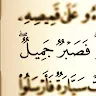 ءُو عَلَىٰ قَمِيصِهِۦ
فَصَبْرٌ جَمِيلٌ ۖ
تْ سَيَّارَةٌ فَأَرْسَلُوا۟